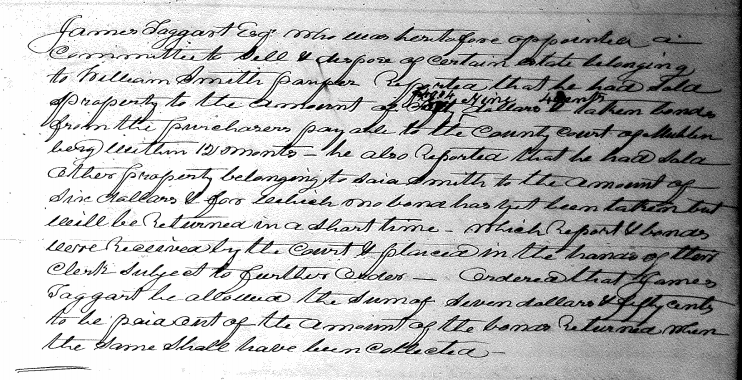 James Taggart Esqr who was heretofore appointed a
Committee to Sell & dispose of certain estate belonging
to William Smith pauper Reported that he had Sold
property to the amount of dollars & taken bonds
from the purchasers payable to the County Court of Muhlen
berg within 12 months – he also Reported that he had Sold
other property belonging to said Smith to the amount of
Six dollars & for which no bond has yet been taken but
will be Returned in a short time – which Report & bonds
were Received by the Court & placed in the hands of their
Clerk Subject to further order — Ordered that James
Taggart be allowed the Sum of Seven dollars & fifty cents
to be paid out of the amount of the bonds Returned when
the Same Shall have been collected –